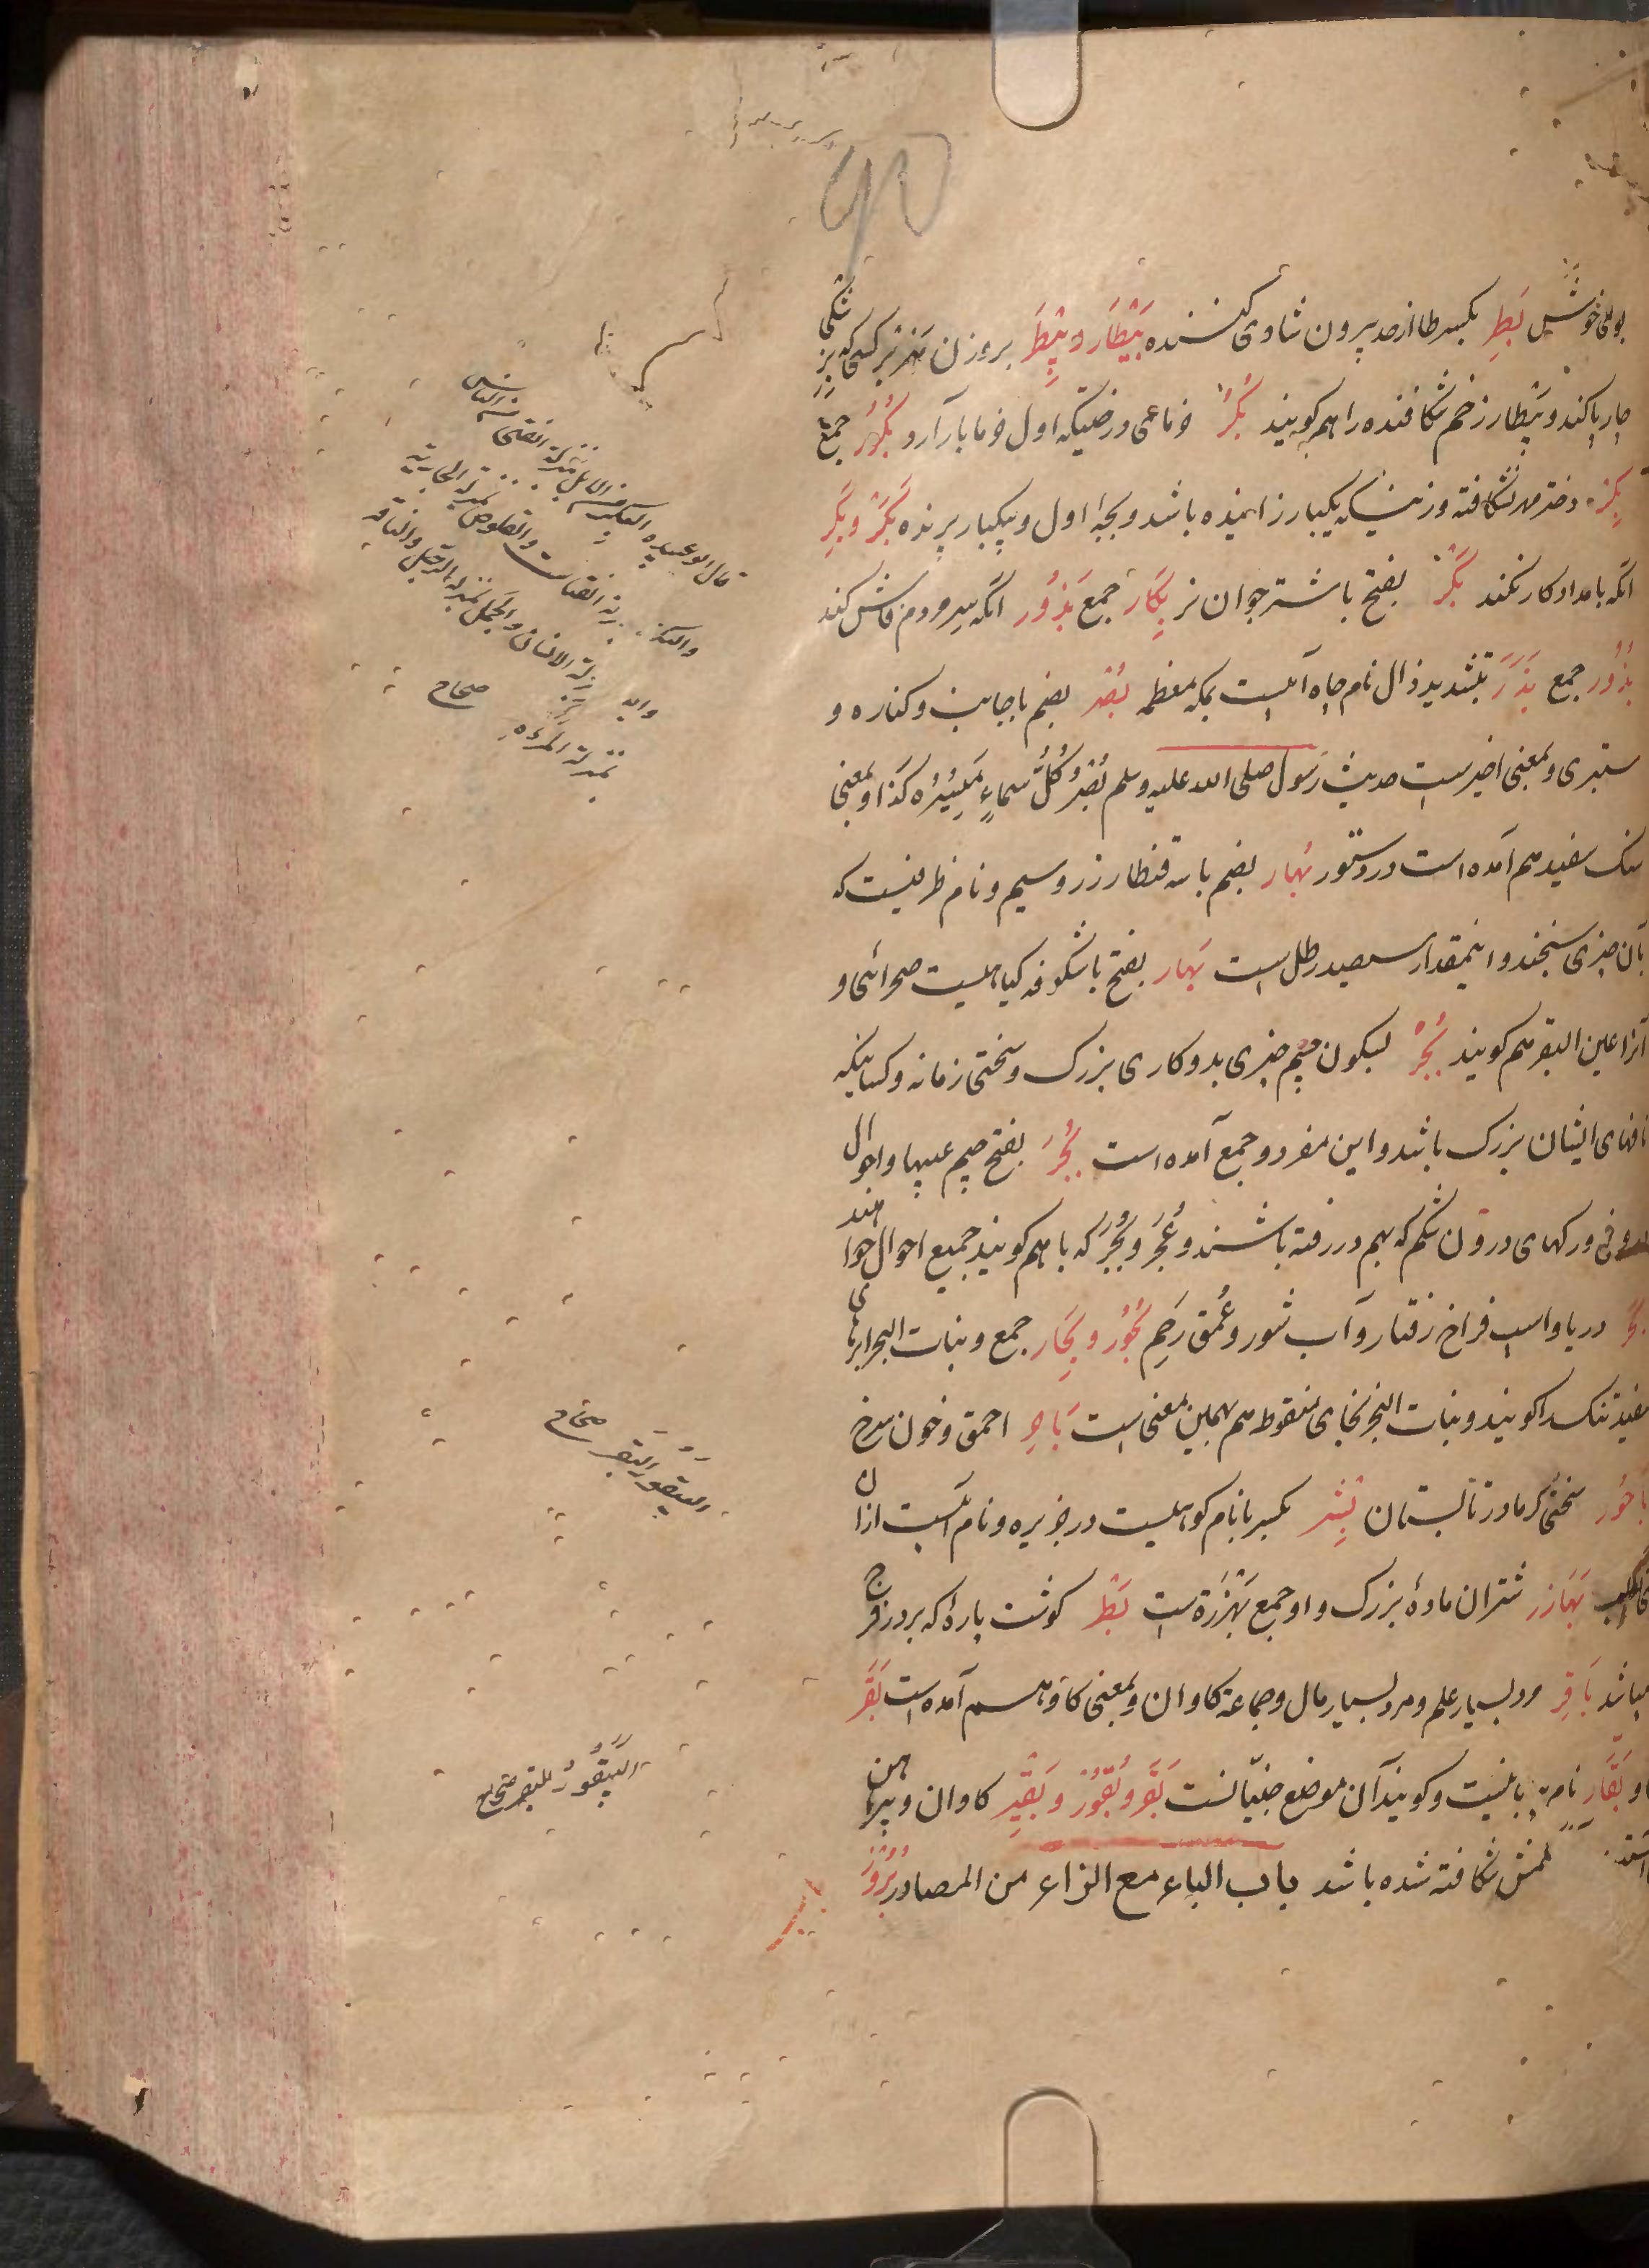 بوی خوش بَطِر بکسر طا از حد بیرون شادی کننده بَیْطَار و بِیَطْر بر وزن هزبر کسی که بزشکی
چارپا کند و بیطار زخم شکافنده را هم گویند بُکُر خرماهی و درختیکه اول خرما بار آرد و بُکُور جمع
بِکْر دختر مهر نشکافته و زنی که یکبار زاینده باشد و بچهٔ اول و یکبار برنده بَکُر و بَکِر
آنکه بامداد کار کند بَکْر بفتح با شتر جوان نر بِکَار جمع بَذُور آنکه سر مردم فاش کند
بُذُر جمع بَذَّر بتشدید ذال نام چاه آبیست بمکه معظمه بُصْر بضم با جانب و کناره و
ستبری و بمعنی اخیر است حدیث رسول صلی الله علیه وسلم بُصْرُ کُلِّ سَماءٍ مَسِیْرَهُ کَذَا و بمعنی
سنک سفید هم آمده است در دستور بُهار بضم با سه قنطار زر و سیم و نام ظرفیست که
بآن چیزی سنجند و اینمقدار سیصد رطل است بَهار بفتح با شکوفه کیاهیست صحرائی و
آنرا عین البقر هم کویند بُجْر بسکون جیم چیزی بد و کاری بزرک و سختی زمانه و کسانیکه
نافهای ایشان بزرک باشد و این مفرد و جمع آمده است بُجَر بفتح جیم عیبها و احوال
و رکهای درون شکم که بهم در رفته باشند و عُجَر و بُجَر که باهم کویند جمیع احوال خواهند
بحر دریا و اسپ فراخ رفتار و آب شور و عُمق رَحِم بُحُور و بِحَار جمع و بنات البحر ابرهای
سفید تنک را کویند و بنات البخر بخای منقوط هم بهمین معنی است بَاحِر احمق و خون سرخ
بَاحُور سختی کرما در تابستان بِشْر بکسر با نام کوهیست در جزیره و نام آبیست از ان
بَهَازر شتران مادهٔ بزرک و او جمع بَهْزَرَة است بَظْر کوشت پارهٔ که بر در فرج
میباشد بَاقِر مرد بسیار علم و مرد بسیار مال و جماعة کاوان و بمعنی کاو هم آمده است بَقَر
و بَقَّار نام و کویند آن موضع جنیانست بَقَر و بُقُور و بَقِیْر کاوان و پیراهن
شکافته شده باشد باب الباء مع الزاء من المصادر بُرُوز
قال ابو عبیده البکر من الابل بمنزلة الفتی من الناس
والبکرة بمنزلة الفتات والقلوص بمنزلة الجاریة
بمنزلة الانسان والجمل بمنزلة الرجل والناقة
بمنزلة المرأه صحاح
البیقور البقر صحاح
البَیْقُورُ البقر صحاح